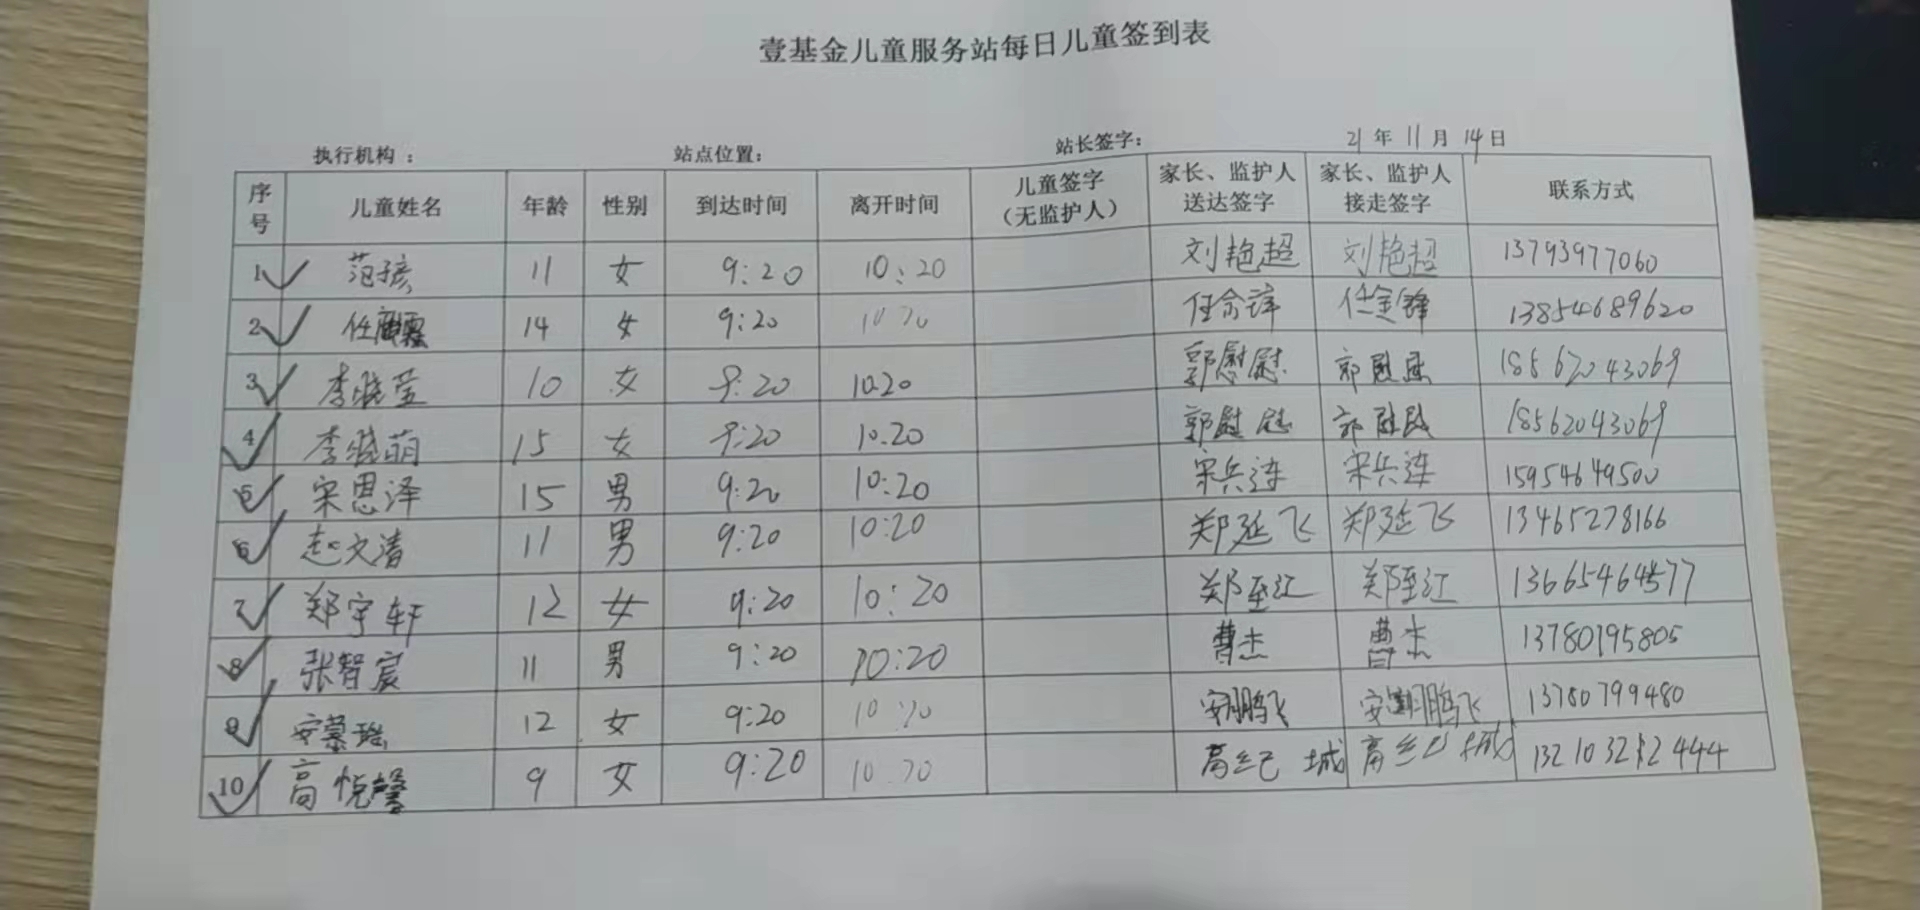 壹基金儿童服务站每日儿童签到表
执行机构： 站点位置： 站长签字： 21年11月14日
序号 儿童姓名 年龄 性别 到达时间 离开时间 儿童签字（无监护人） 家长、监护人送达签字 家长、监护人接走签字 联系方式
1 范孩 11 女 9:20 10:20 刘艳超 刘艳超 13793977060
2 任 14 女 9:20 10 20 任金锋 任金锋 13854689620
3 李晓莹 10 女 9:20 10.20 郭慰慰 郭慰慰 18562043069
4 李晓萌 15 女 9:20 10.20 郭慰慰 郭慰慰 18562043069
5 宋思泽 15 男 9:20 10:20 宋兵连 宋兵连 15954649500
6 赵文清 11 男 9:20 10:20 郑延飞 郑延飞 13465278166
7 郑宇轩 12 女 9:20 10:20 郑至江 郑至江 13665464577
8 张智宸 11 男 9:20 10:20 曹杰 曹杰 13780195805
9 安慕瑶 12 女 9:20 10:20 安鹏飞 安鹏飞 13780799480
10 高悦馨 9 女 9:20 10:20 高纪城 高纪城 13210322444